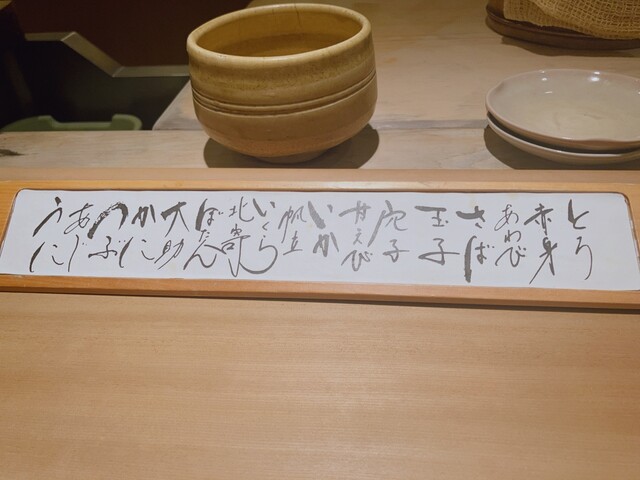 とろ
赤身
あわび
さば
玉子
穴子
甘えび
いか
帆立
いくら
北寄
ぼたん
大助
かに
のぶし
あじ
うに